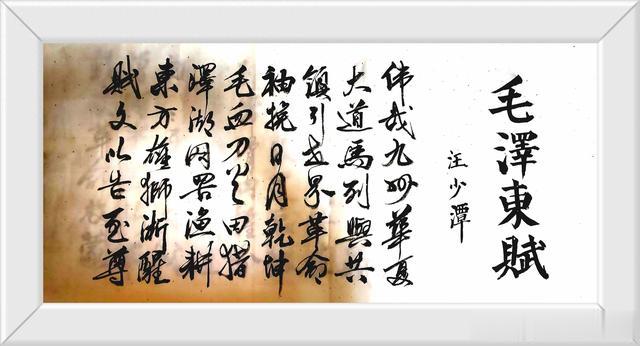 毛澤東賦
汪少潭
伟哉九州華夏
大道馬列與共
領引世界革命
袖挽日月乾坤
毛血刀田猎
澤湖网罟渔耕
東方雄獅渐醒
賦文以告至尊